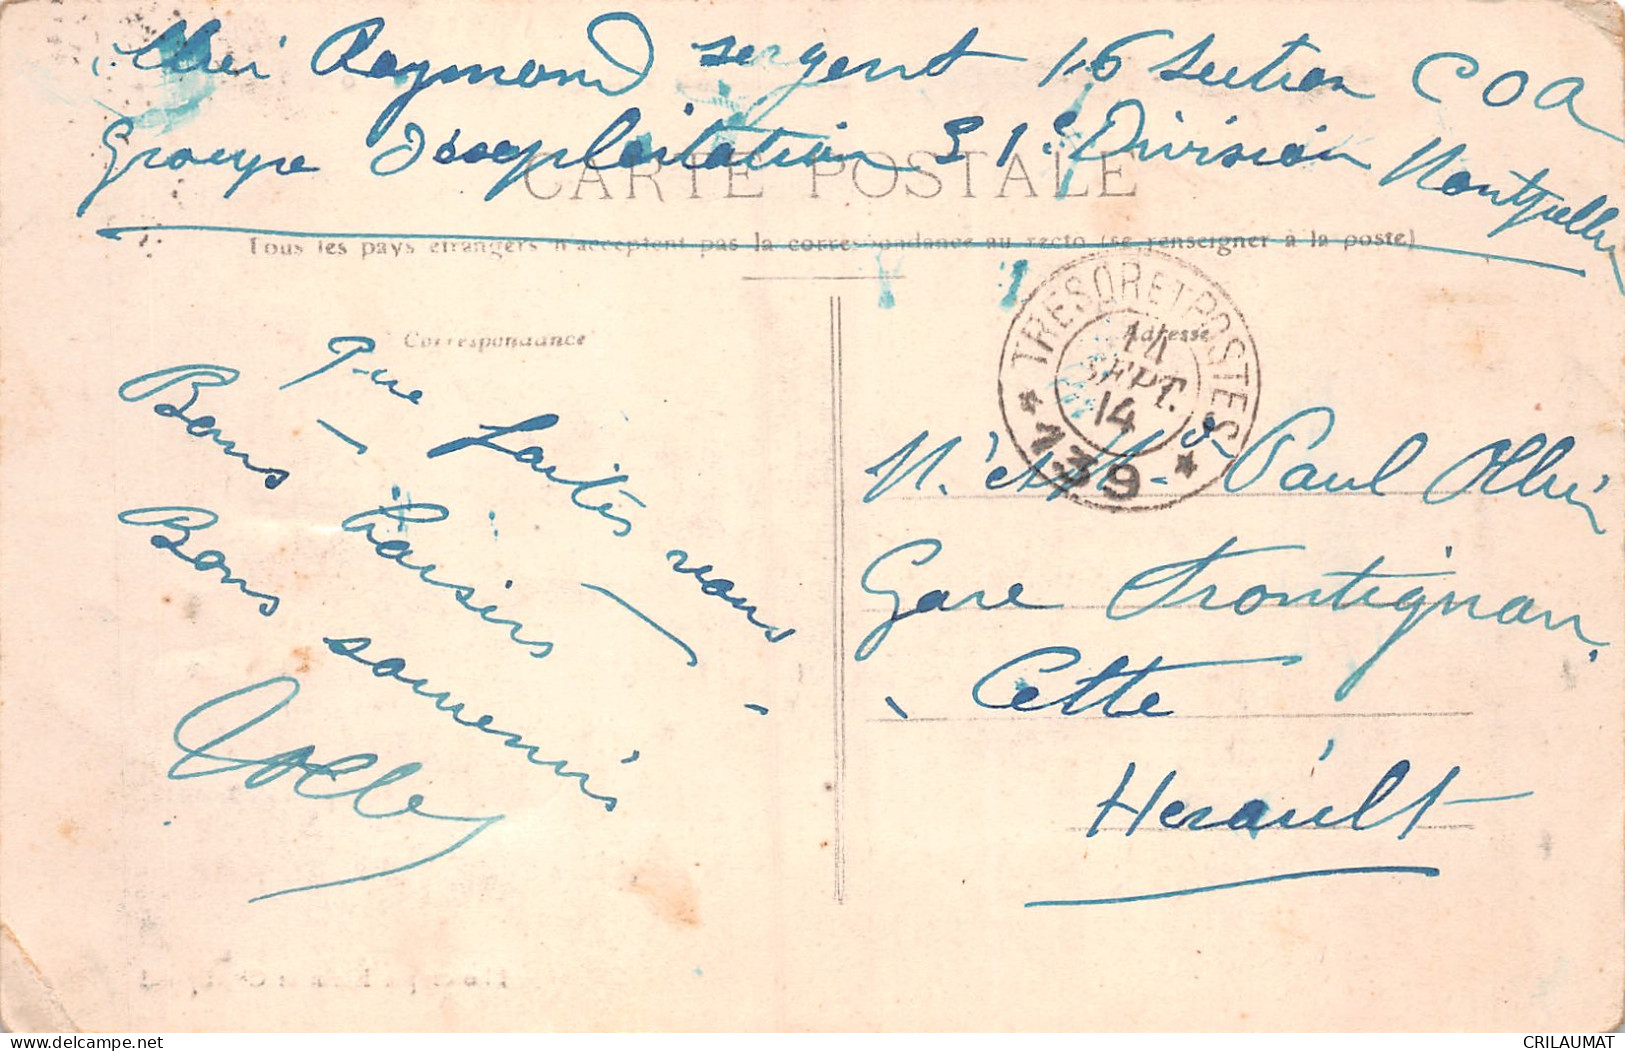 Raymond sergent 16 Section COA
Groupe d'exploitation 31e Division Montpellier
CARTE POSTALE
Tous les pays étrangers n'acceptent pas la correspondance au recto (se renseigner à la poste)
Correspondance
Que faites vous
Bons
Bons souvenirs
Adresse
TRESOR ET POSTES
14
SEPT.
14
* 139 *
Paul
Gare Frontignan
Cette
Hérault
CRILAUMAT